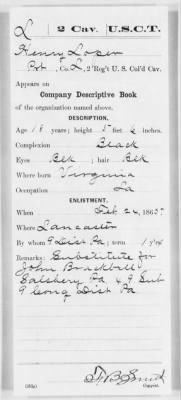 L 2 Cav. U.S.C.T.
Henry Loper
Pvt, Co. L, 2 Reg't U. S. Col'd Cav.
Appears on
Company Descriptive Book
of the organization named above.
DESCRIPTION.
Age 18 years; height 5 feet 6 inches.
Complexion Black
Eyes Blk; hair Blk
Where born Virginia
Occupation
ENLISTMENT.
When Feb 24, 1865
Where Lancaster
By whom 9 Dist Pa; term 1 y'rs
Remarks: Substitute for
John Brackbill
Salsbery Pa 49 Sub
9 Cong Dist Pa
Copyist.